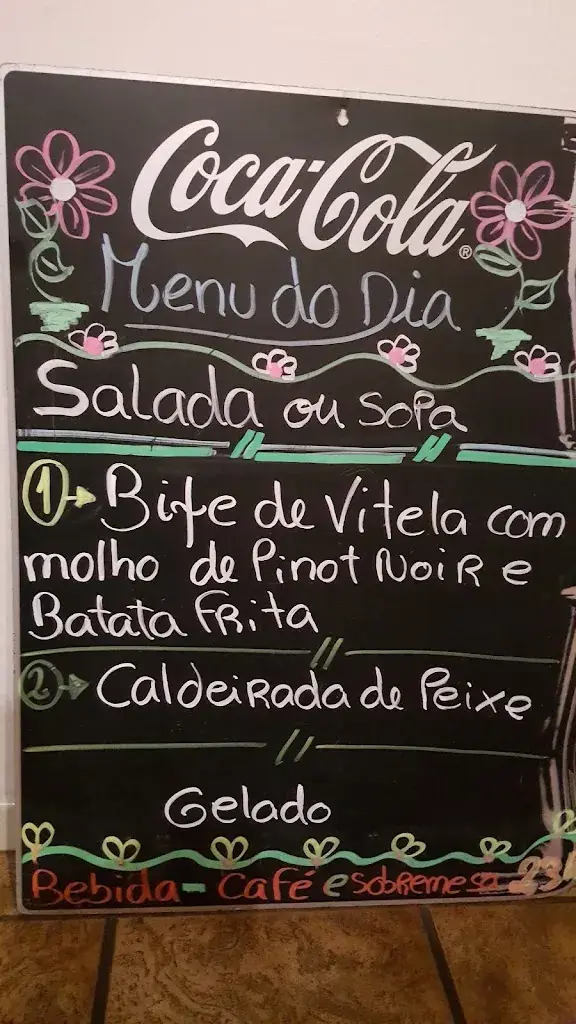 Coca-Cola®
Menu do Dia
Salada ou Sopa
1 → Bife de Vitela com
molho de Pinot Noir e
Batata Frita
2 → Caldeirada de Peixe
Gelado
Bebida - Café e sobremesa 23